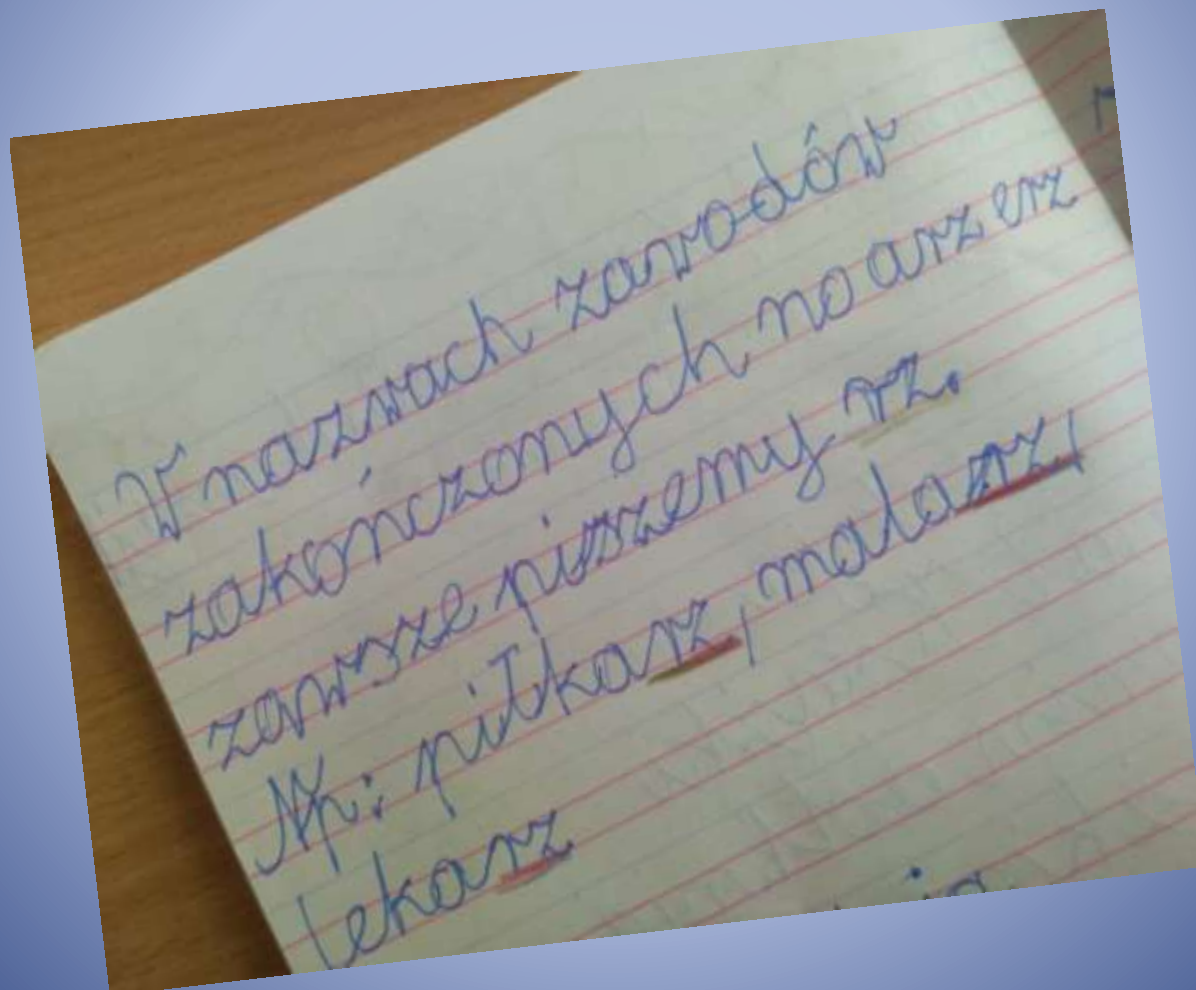 W nazwach zawodów
zakończonych na arz erz
zawsze piszemy rz.
Np: piłkarz, malarz,
lekarz